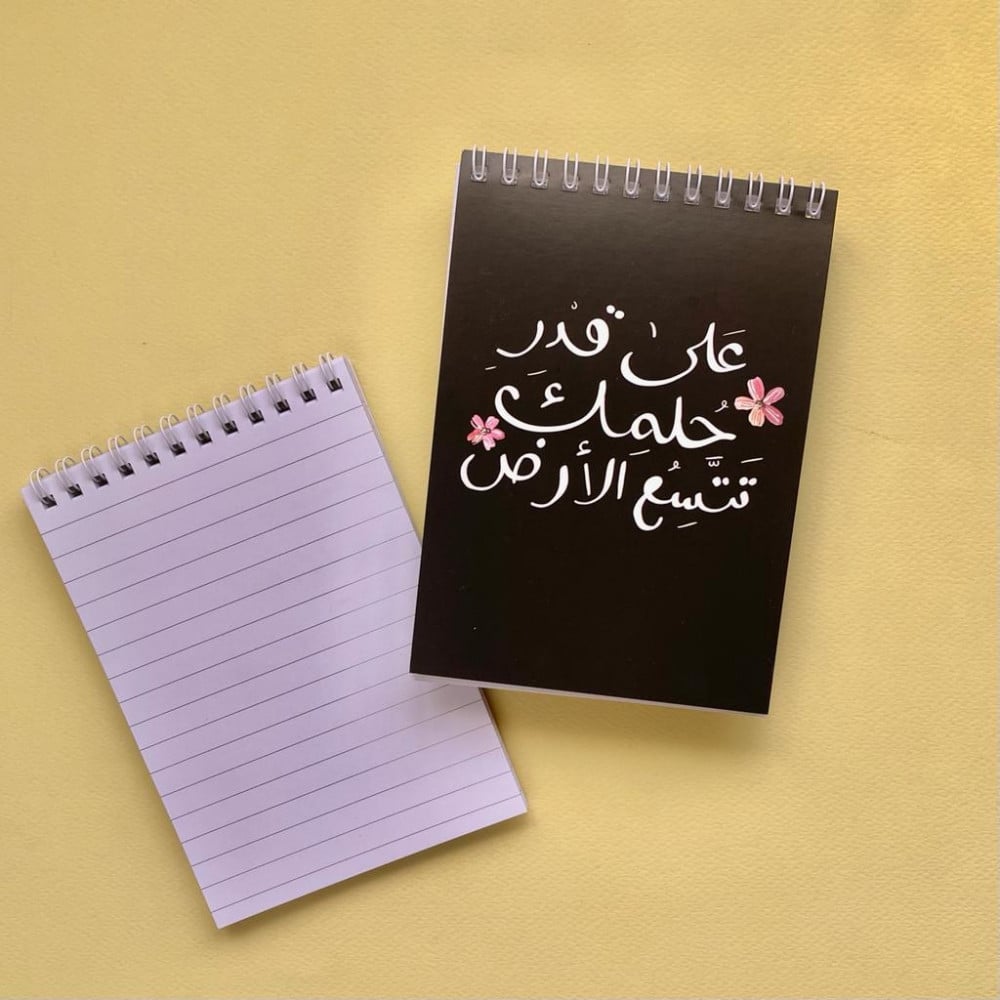 عَلىٰ قَدْرِ
حُلمِكَ
تَتَّسِعُ الأرض